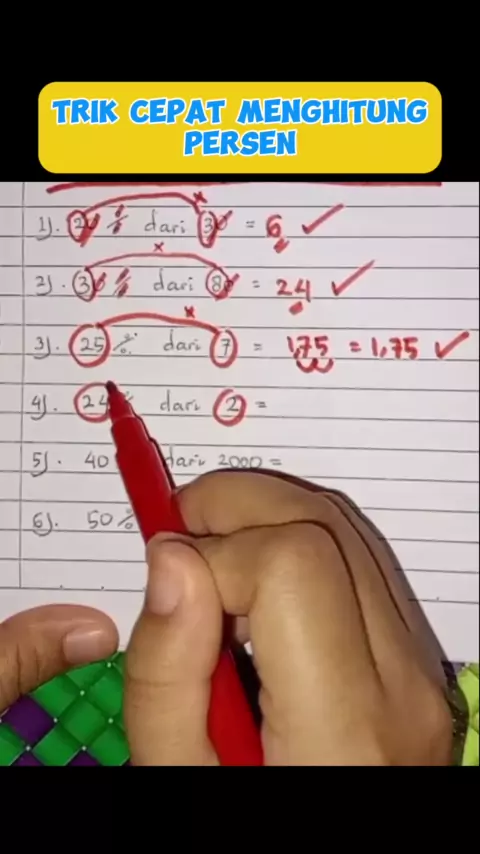 TRIK CEPAT MENGHITUNG
PERSEN
1). 20 % dari 30 = 6 ✓
x
2). 30 % dari 80 = 24 ✓
x
3). 25 % dari 7 = 1,75 = 1,75 ✓
4). 24 dari 2 =
5). 40 dari 2000 =
6). 50 %